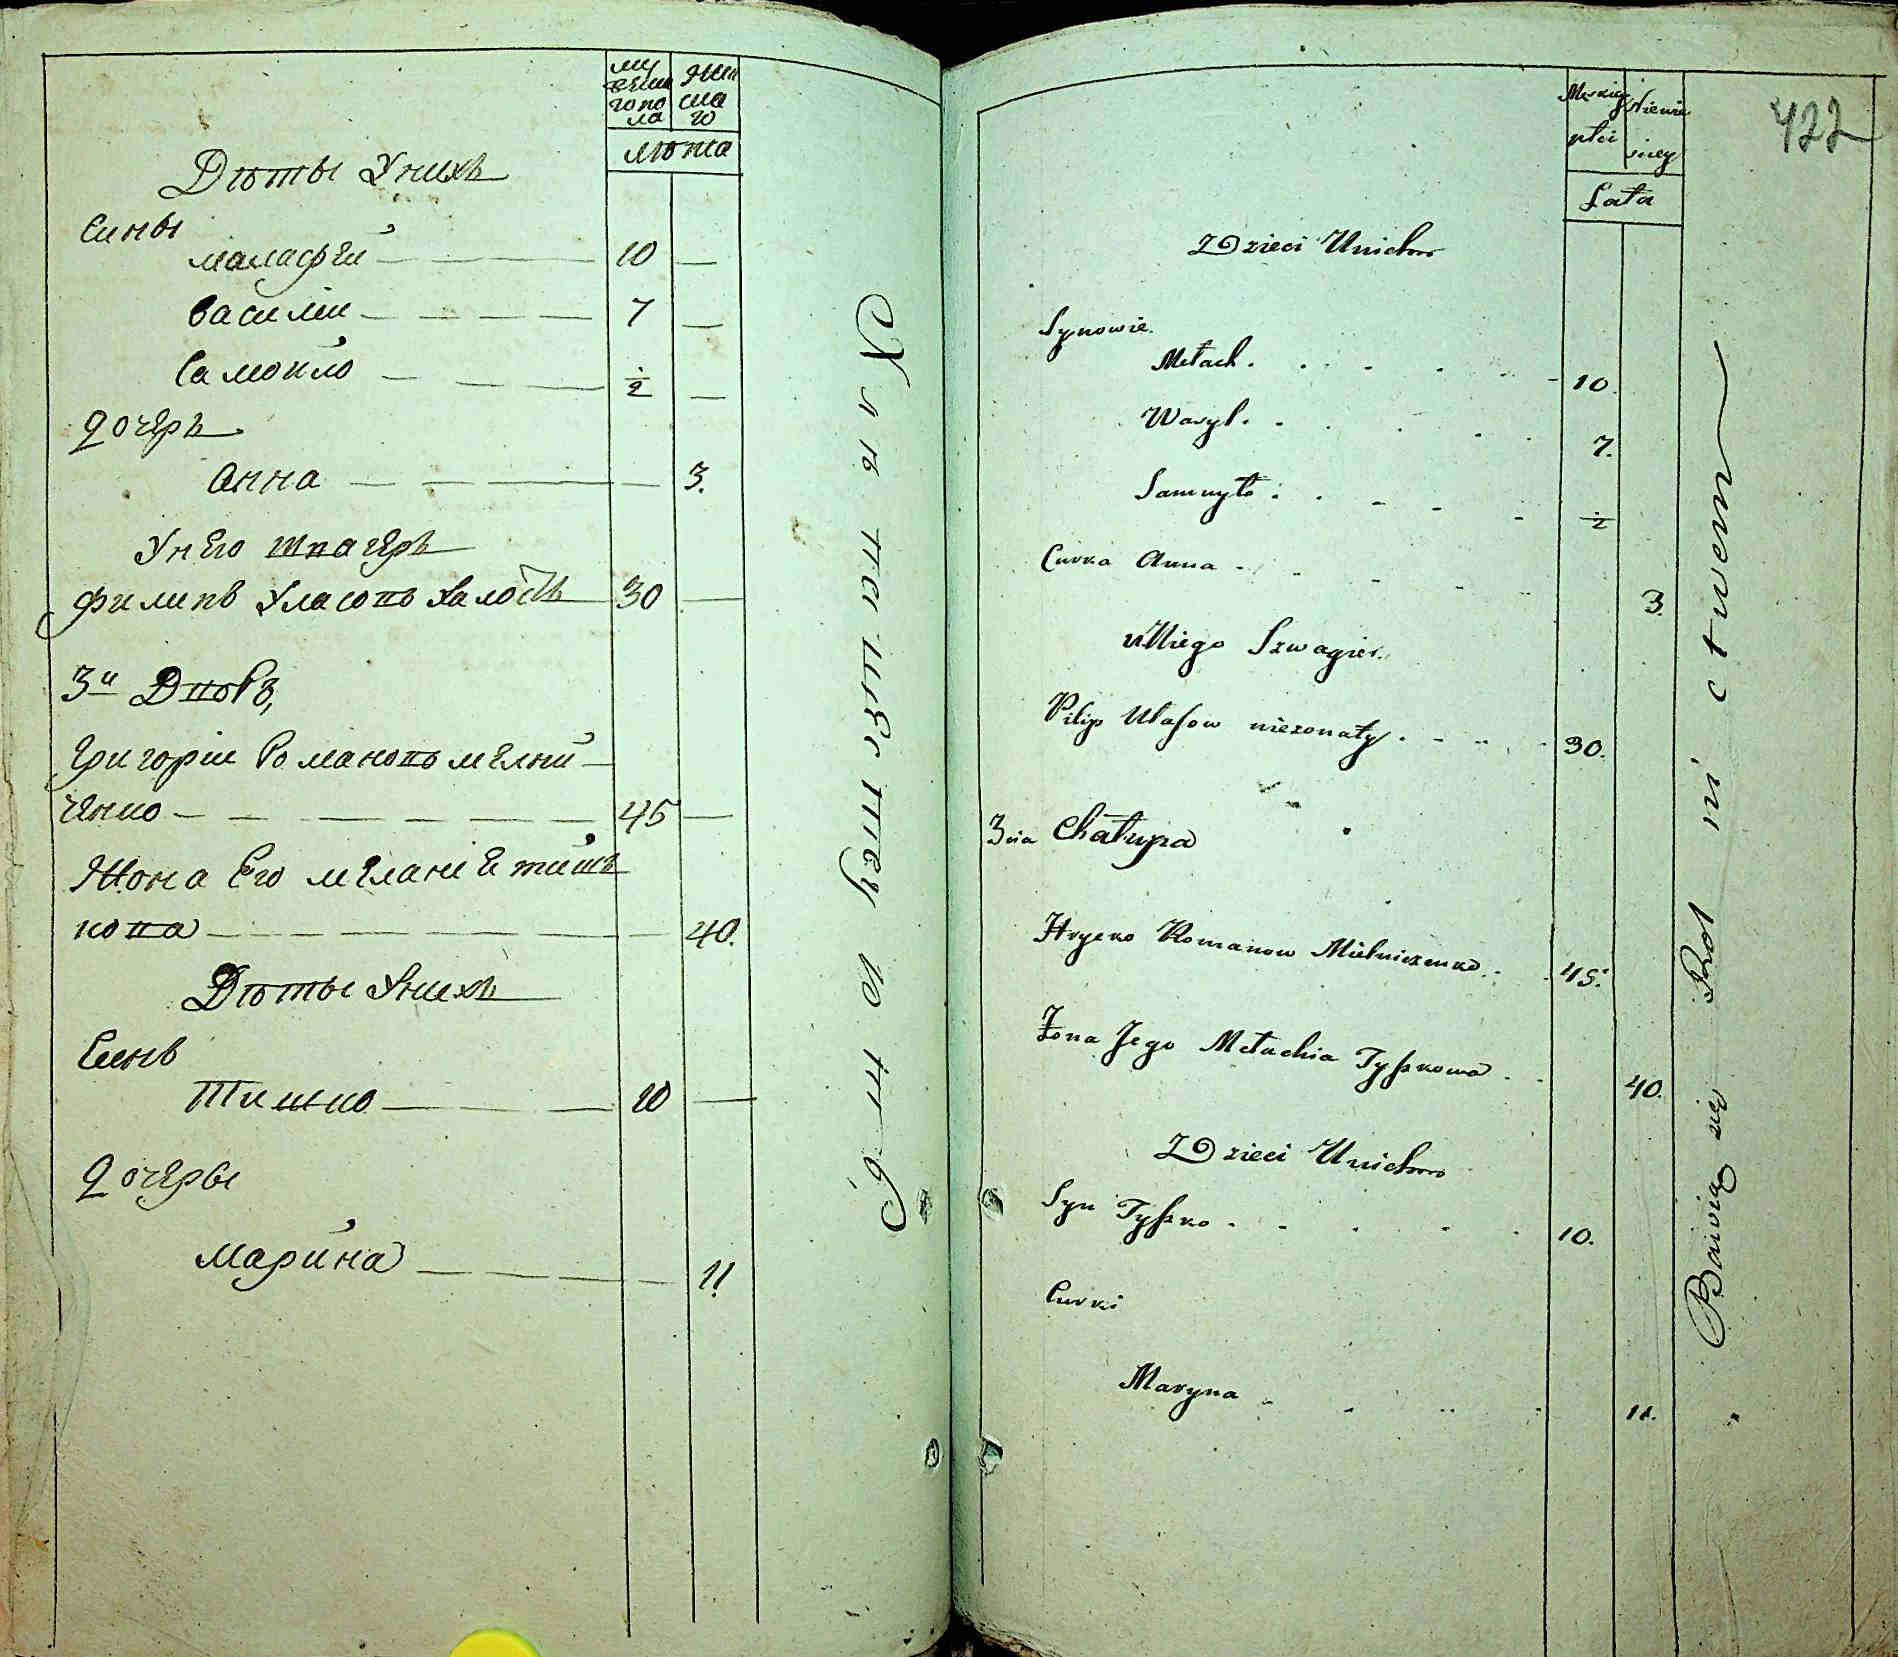 мужеска го пола
женска го
лѣта
Дѣты Унихъ
Сины
малафѣй 10 —
Василій 7 —
Самойло ½ —
дочеръ
Анна 3.
Унего швагеръ
Филипъ Уласовъ холостъ 30 —
3й Дворъ,
Григорій Романовъ мелни
ченко 45 —
Жона Его меланія тиш
кова 40.
Дѣты Унихъ
Синъ
Тишко 10 —
дочеры
Марина 11
422
Męzkiey płci
Niewie sciey
Lata
Dzieci Unich
Synowie.
Małach. 10.
Wasyl. 7.
Samuyło. ½
Curka Anna 3.
u Niego Szwagier.
Pilip Ułasow nieżonaty. 30.
3cia Chałupa
Hrycko Romanow Mielniczenko. 45.
Żona Jego Małachia Tyszkowa 40.
Dzieci Unich
Syn Tyszko 10.
Curki
Maryna 11.
Bawią się Rol ni ctwem